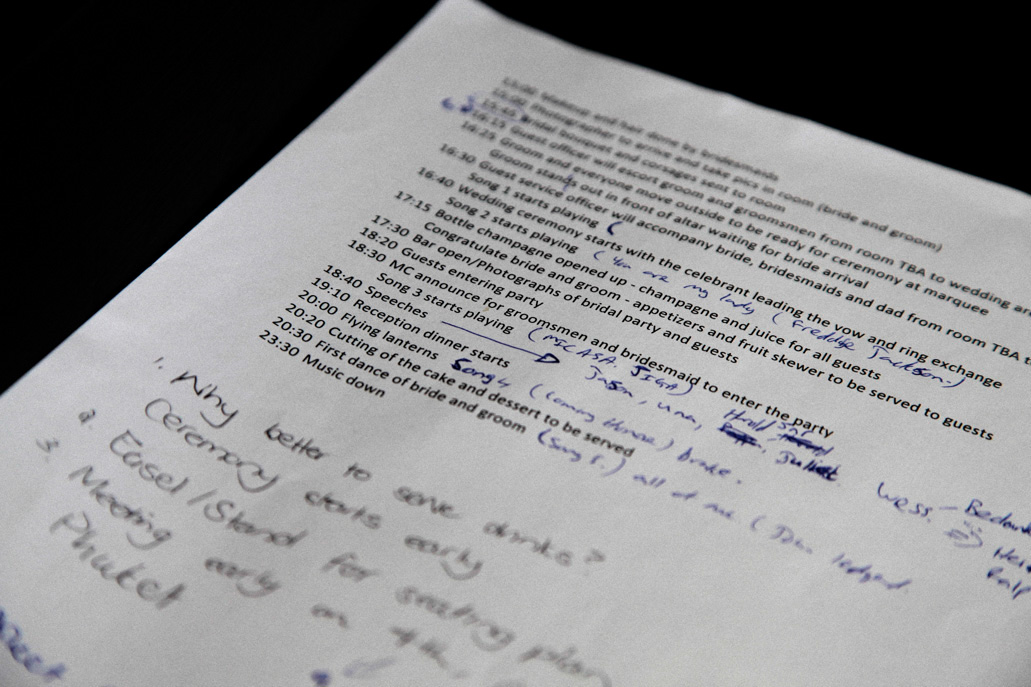 15:00 Makeup and hair done by bridesmaids
Photographer to arrive and take pics in room (bride and groom)
15:45 Bridal bouquet and corsages sent to room
16:15 Guest officer will escort groom and groomsmen from room TBA to wedding
16:25 Groom and everyone move outside to be ready for ceremony at marquee
Groom stands out in front of altar waiting for bride arrival
16:30 Guest service officer will accompany bride, bridesmaids and dad from room TBA
Song 1 starts playing (
16:40 Wedding ceremony starts with the celebrant leading the vow and ring exchange
Song 2 starts playing (You are my lady (Freddie Jackson.)
17:15 Bottle champagne opened up - champagne and juice for all guests
Congratulate bride and groom - appetizers and fruit skewer to be served to guests
17:30 Bar open/Photographs of bridal party and guests
18:20 Guests entering party
18:30 MC announce for groomsmen and bridesmaid to enter the party
Song 3 starts playing
18:40 Speeches
Jason, una,
19:10 Reception dinner starts
20:00 Flying lanterns Song 4
20:20 Cutting of the cake and dessert to be served
20:30 First dance of bride and groom (Song 5.) all of me (John
23:30 Music down
Wess.
1. Why better to serve drinks?
Ceremony starts early
2. Easel/Stand for seating plan
3. Meeting early on 4th,
Phuket